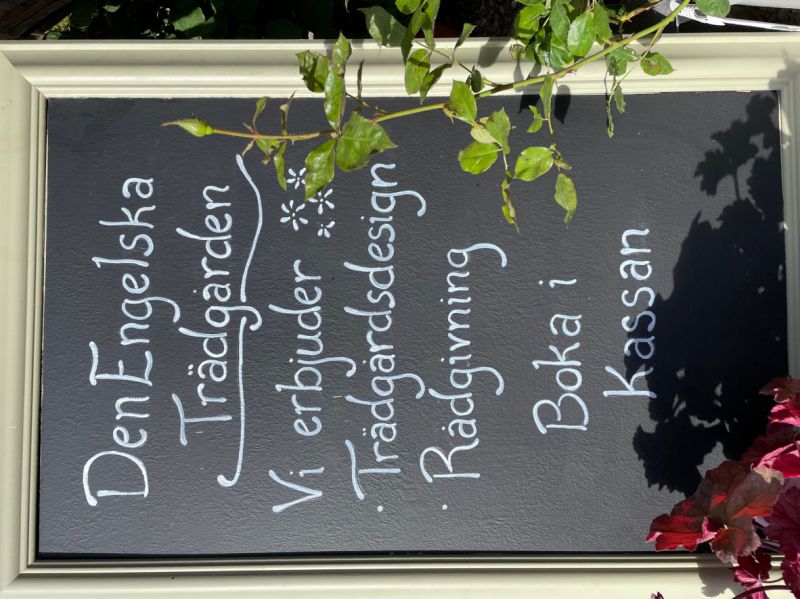 Den Engelska
Trädgården
Vi erbjuder
· Trädgårdsdesign
· Rådgivning
Boka i
Kassan